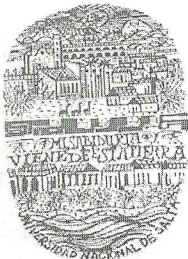 MI SABIDURIA
VIENE DE ESTA TIERRA
UNIVERSIDAD NACIONAL DE SALTA